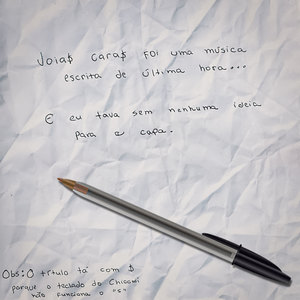 Joia$ Cara$ Foi uma música
escrita de última hora...
E eu tava sem nenhuma ideia
para a capa.
Obs: O título tá com $
porque o teclado do
não funciona o "S"